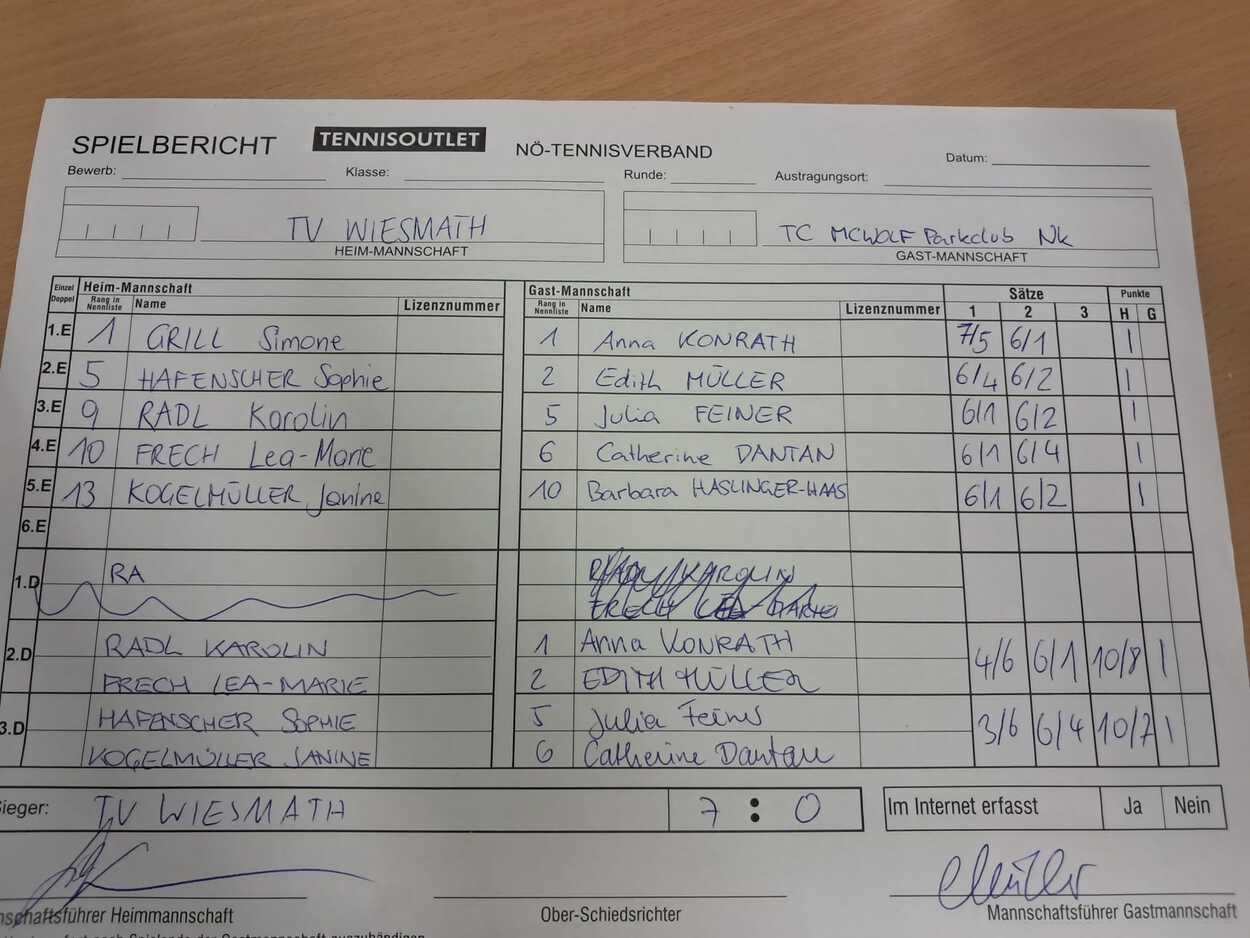 SPIELBERICHT TENNISOUTLET NÖ-TENNISVERBAND
Bewerb: Klasse: Runde: Austragungsort: Datum:
TV WIESMATH TC MCWOLF Parkclub Nk
HEIM-MANNSCHAFT GAST-MANNSCHAFT
Einzel Doppel Heim-Mannschaft Gast-Mannschaft Sätze Punkte
Rang in Nennliste Name Lizenznummer Rang in Nennliste Name Lizenznummer 1 2 3 H G
1.E 1 GRILL Simone 1 Anna KONRATH 7/5 6/1 1
2.E 5 HAFENSCHER Sophie 2 Edith MÜLLER 6/4 6/2 1
3.E 9 RADL Karolin 5 Julia FEINER 6/1 6/2 1
4.E 10 FRECH Lea-Marie 6 Catherine DANTAN 6/1 6/4 1
5.E 13 KOGELMÜLLER Janine 10 Barbara HASLINGER-HAAS 6/1 6/2 1
6.E
1.D RA RADL KAROLIN
FRECH LEA-MARIE
2.D RADL KAROLIN 1 Anna KONRATH 4/6 6/1 10/8 1
FRECH LEA-MARIE 2 EDITH MÜLLER
3.D HAFENSCHER SOPHIE 5 Julia Feiner 3/6 6/4 10/7 1
KOGELMÜLLER JANINE 6 Catherine Dantan
Sieger: TV WIESMATH 7 : 0 Im Internet erfasst Ja Nein
nschaftsführer Heimmannschaft Ober-Schiedsrichter Mannschaftsführer Gastmannschaft